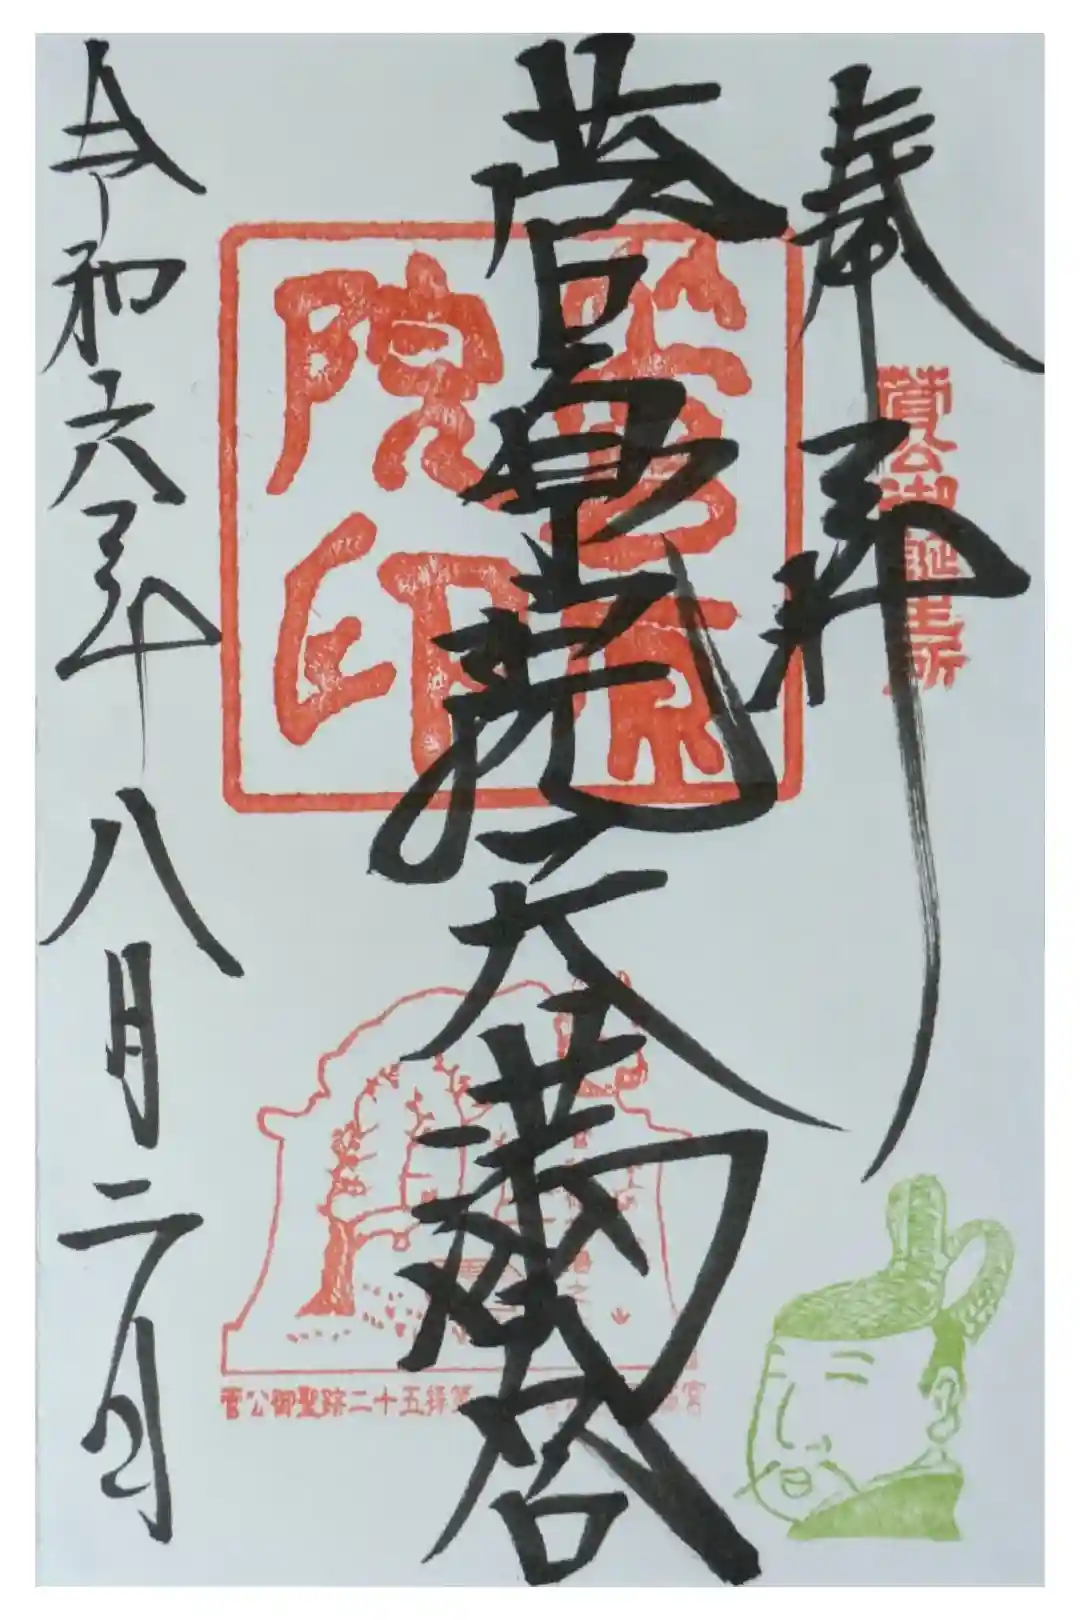 奉拝
菅公御誕生所
菅原院天満宮
菅原院印
菅公御聖跡二十五拝第
宮
令和六年八月二日